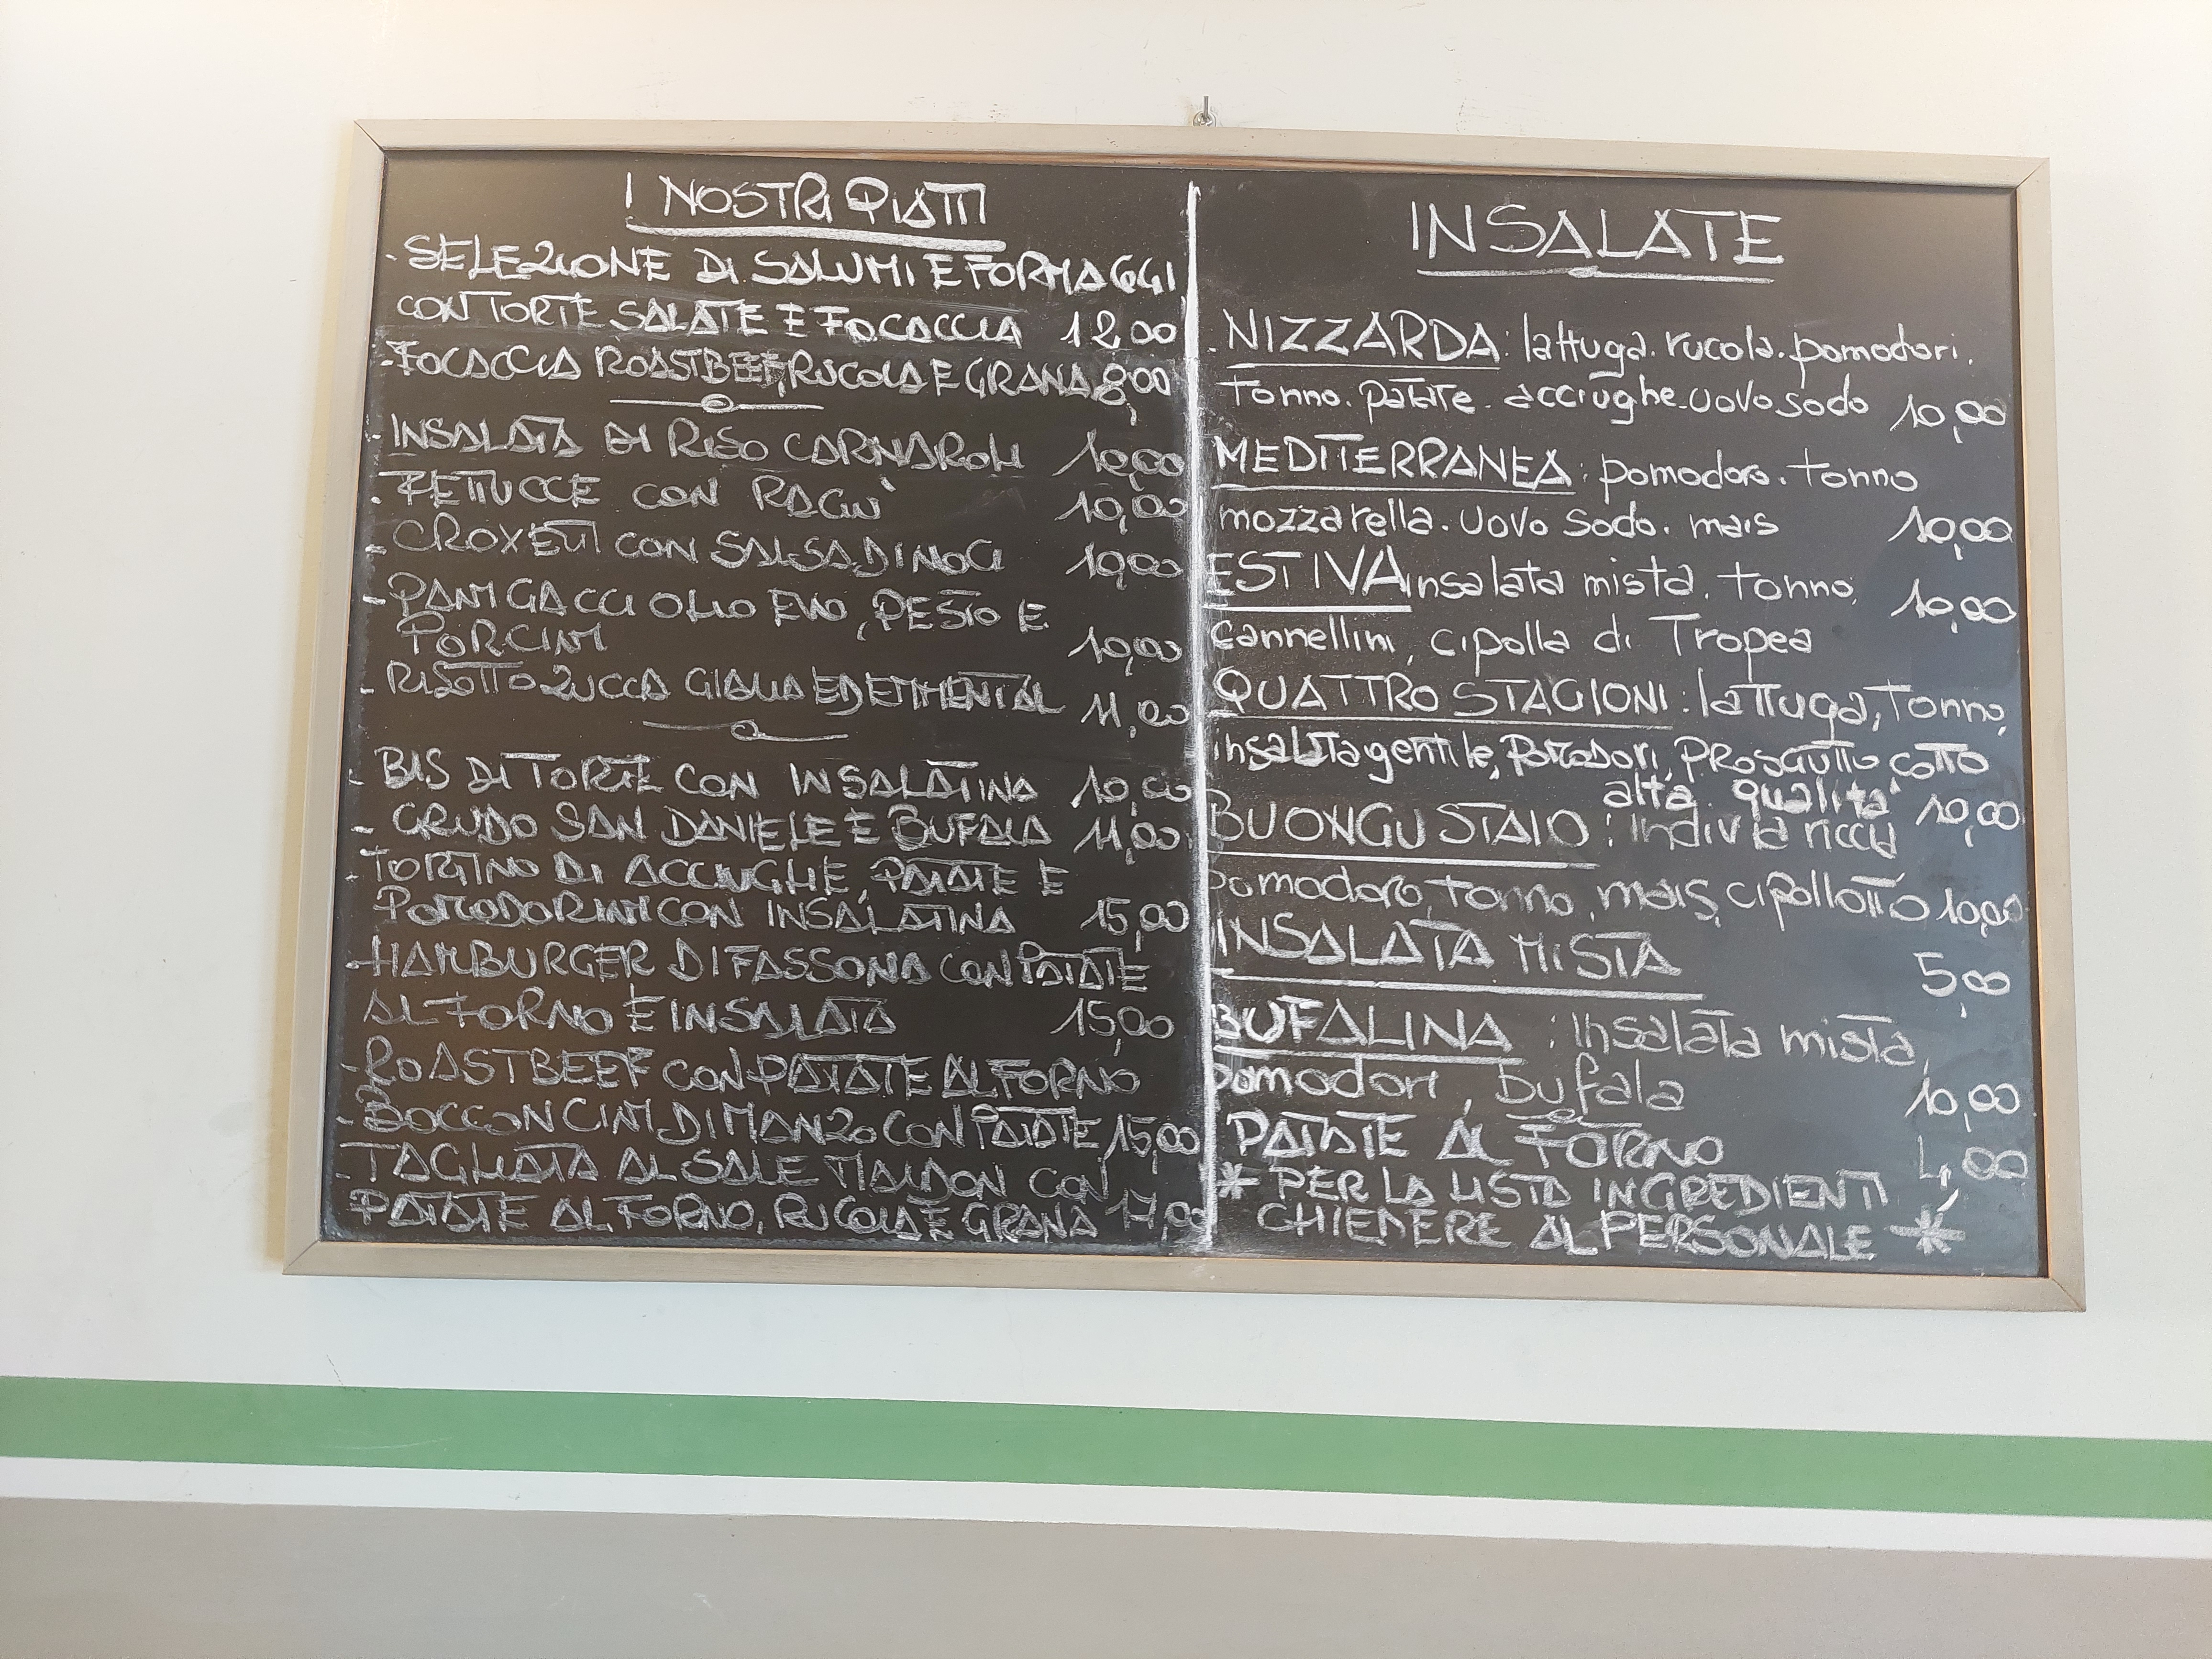 I NOSTRI PIATTI
- SELEZIONE DI SALUMI E FORMAGGI
CON TORTE SALATE E FOCACCIA 12,00
- FOCACCIA ROASTBEEF, RUCOLA E GRANA 8,00
- INSALATA DI RISO CARNAROLI 10,00
- FETTUCCE CON RAGU' 10,00
- CROXETTI CON SALSA DI NOCI 10,00
- PANIGACCI OLIO EVO, PESTO E
PORCINI 10,00
- RISOTTO ZUCCA GIALLA ED EMMENTAL 11,00
- BIS DI TORTE CON INSALATINA 10,00
- CRUDO SAN DANIELE E BUFALA 11,00
- TORTINO DI ACCIUGHE, PATATE E
POMODORINI CON INSALATINA 15,00
- HAMBURGER DI FASSONA CON PATATE
AL FORNO E INSALATA 15,00
- ROASTBEEF CON PATATE AL FORNO
- BOCCONCINI DI MANZO CON PATATE 15,00
- TAGLIATA AL SALE MALDON CON
PATATE AL FORNO, RUCOLA E GRANA 17,00
INSALATE
. NIZZARDA: lattuga. rucola. pomodori.
Tonno. patate. acciughe. uovo sodo 10,00
MEDITERRANEA: pomodoro. tonno
mozzarella. uovo sodo. mais 10,00
ESTIVA insalata mista. tonno, 10,00
cannellini, cipolla di Tropea
QUATTRO STAGIONI: lattuga, Tonno,
insalata gentile, pomodori, prosciutto cotto
alta qualita' 10,00
BUONGUSTAIO: indivia riccia
pomodoro, tonno, mais, cipollotto 10,00
INSALATA MISTA 5,00
BUFALINA: Insalata mista,
pomodori, bufala 10,00
PATATE AL FORNO 4,00
* PER LA LISTA INGREDIENTI
CHIEDERE AL PERSONALE *